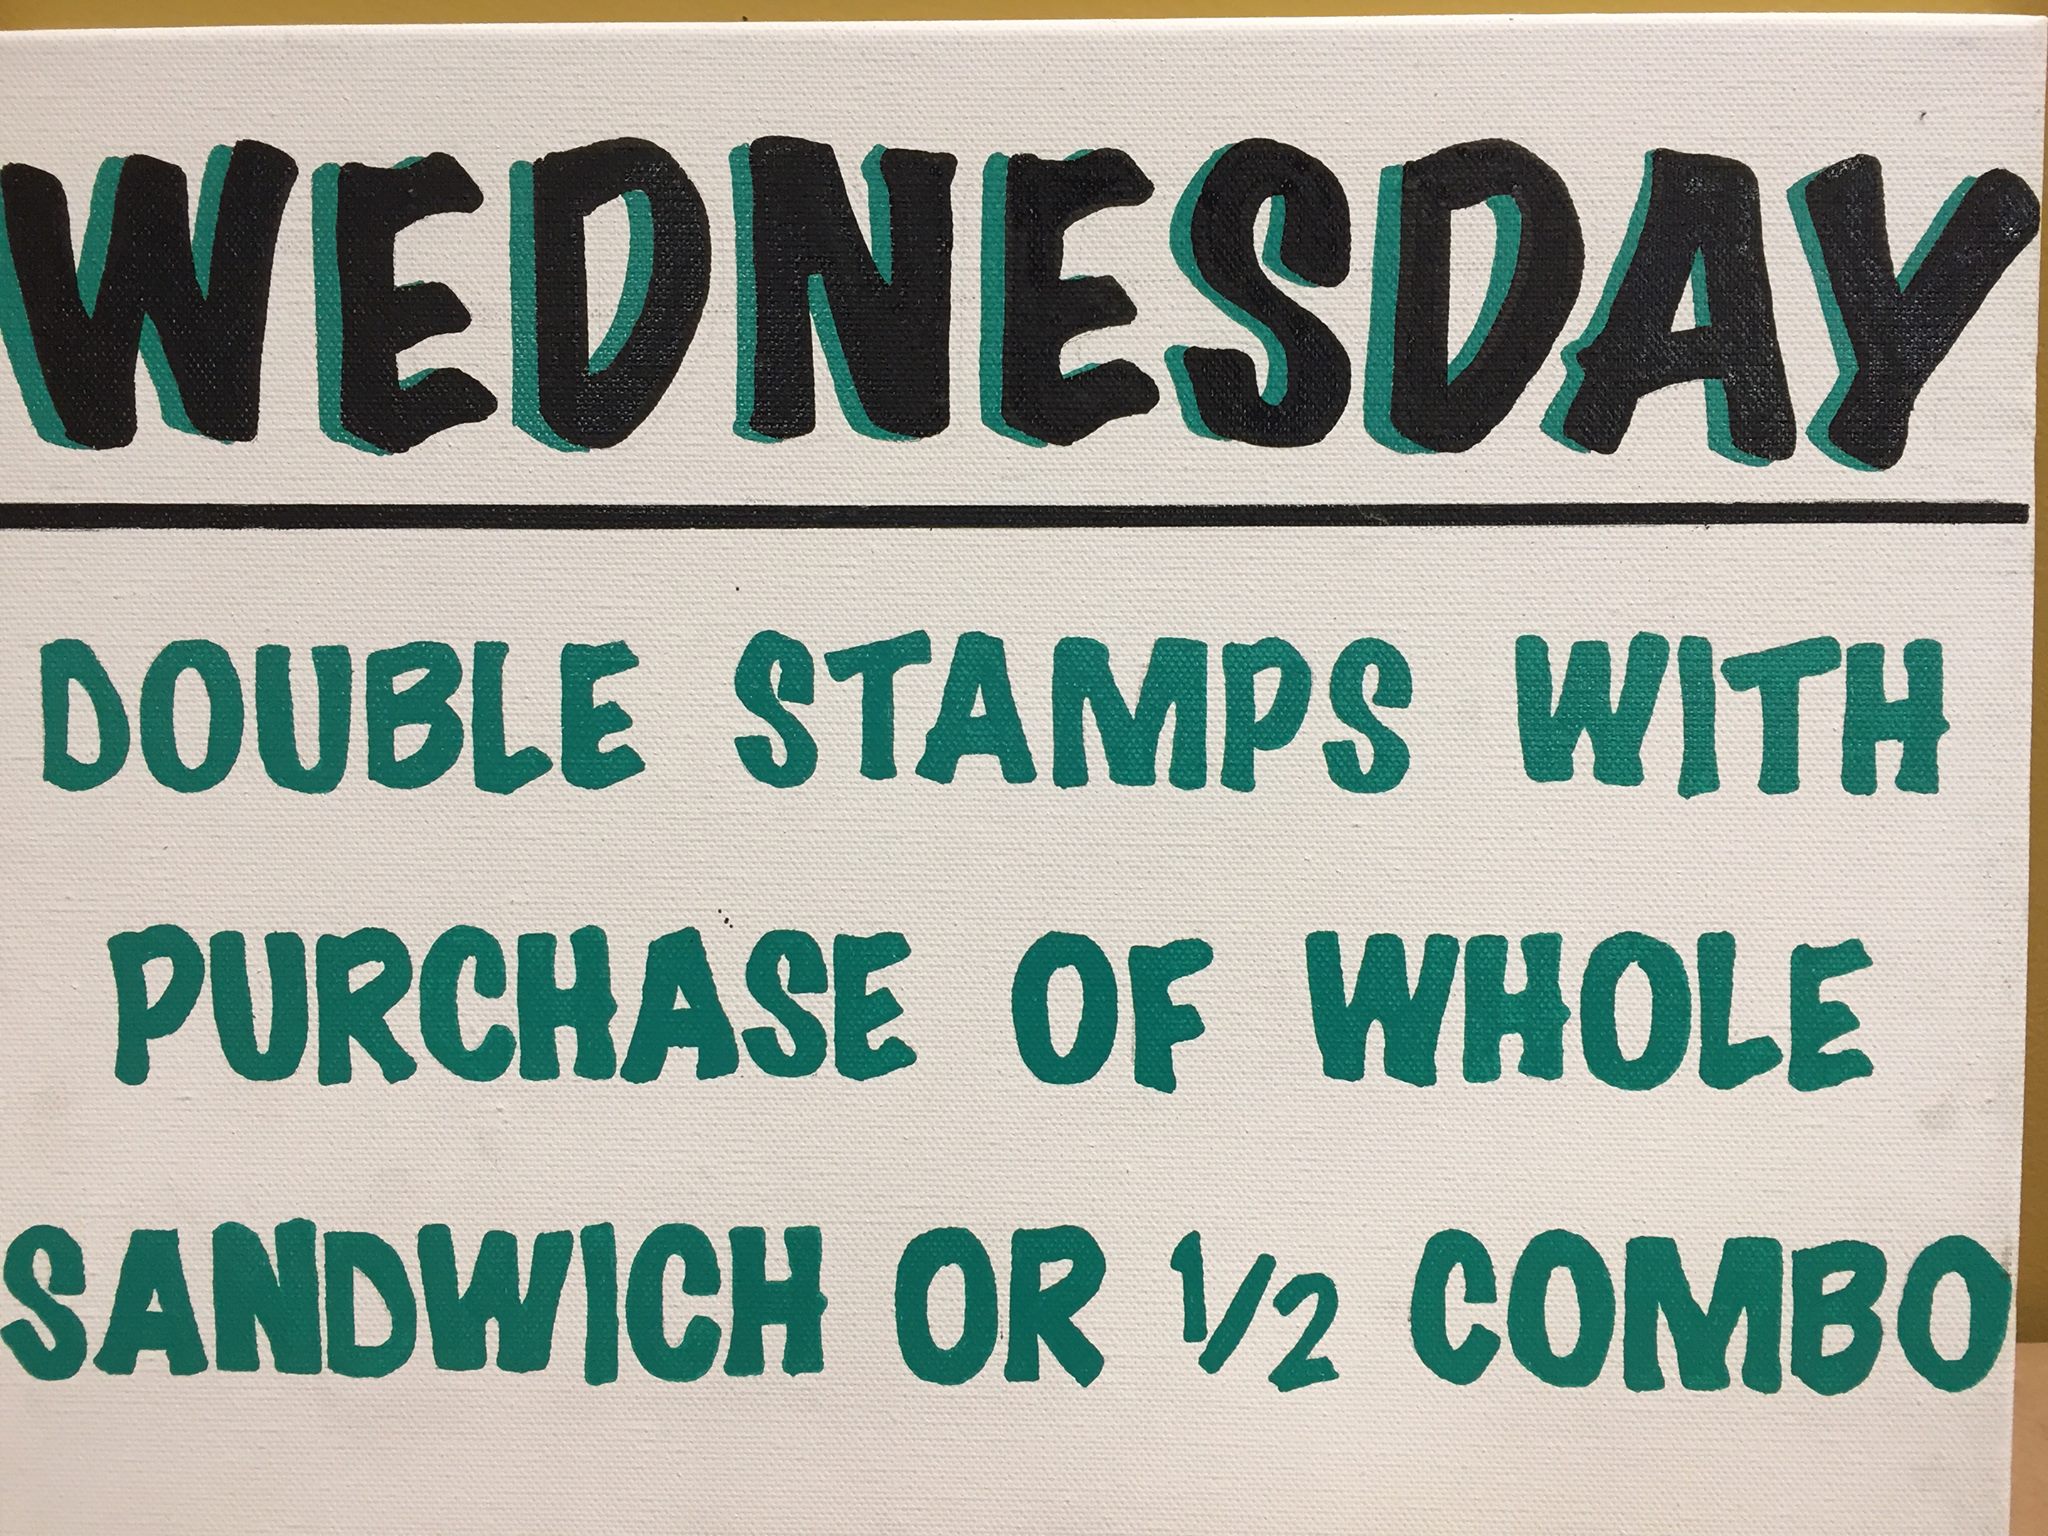 WEDNESDAY
DOUBLE STAMPS WITH
PURCHASE OF WHOLE
SANDWICH OR 1/2 COMBO